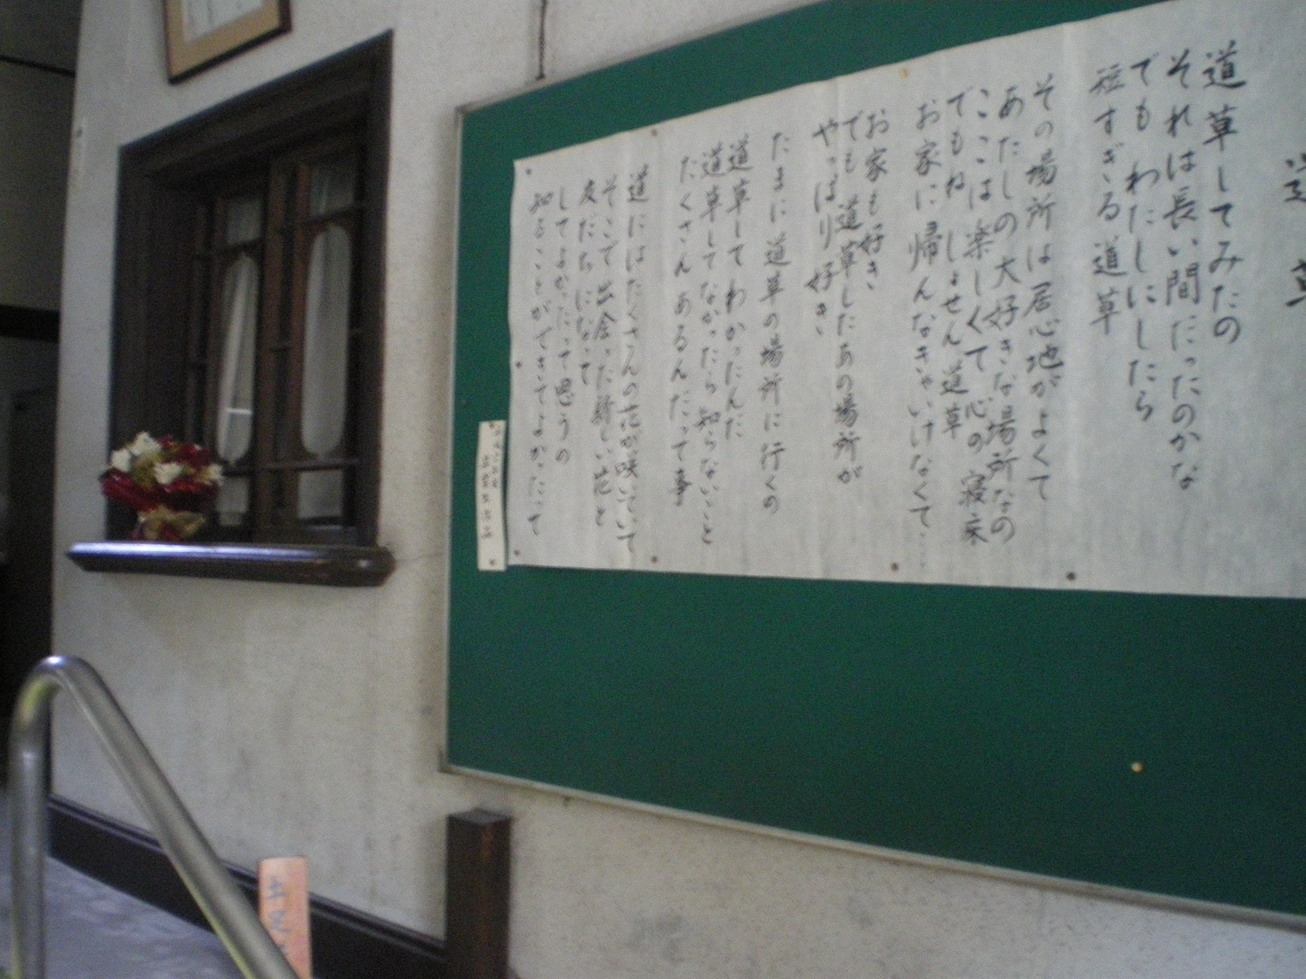 道草
道草してみたの
それは長い間だったのかな
でもわたしにしたら
短すぎる道草
その場所は居心地がよくて
あたしの大好きな場所なの
ここは楽しくて心の寝床
でもね しょせん 道草
お家に帰んなきゃいけなくて..
お家も好き
でも 道草したあの場所が
やっぱり好き
たまに 道草の場所に行くの
道草して わかったんだ
道草してなかったら 知らないこと
たくさん あるんだって事
道にはたくさんの花が咲いていて
そこで出会った新しい花と
友だちになって
してよかったって思うの
知ることができてよかったって